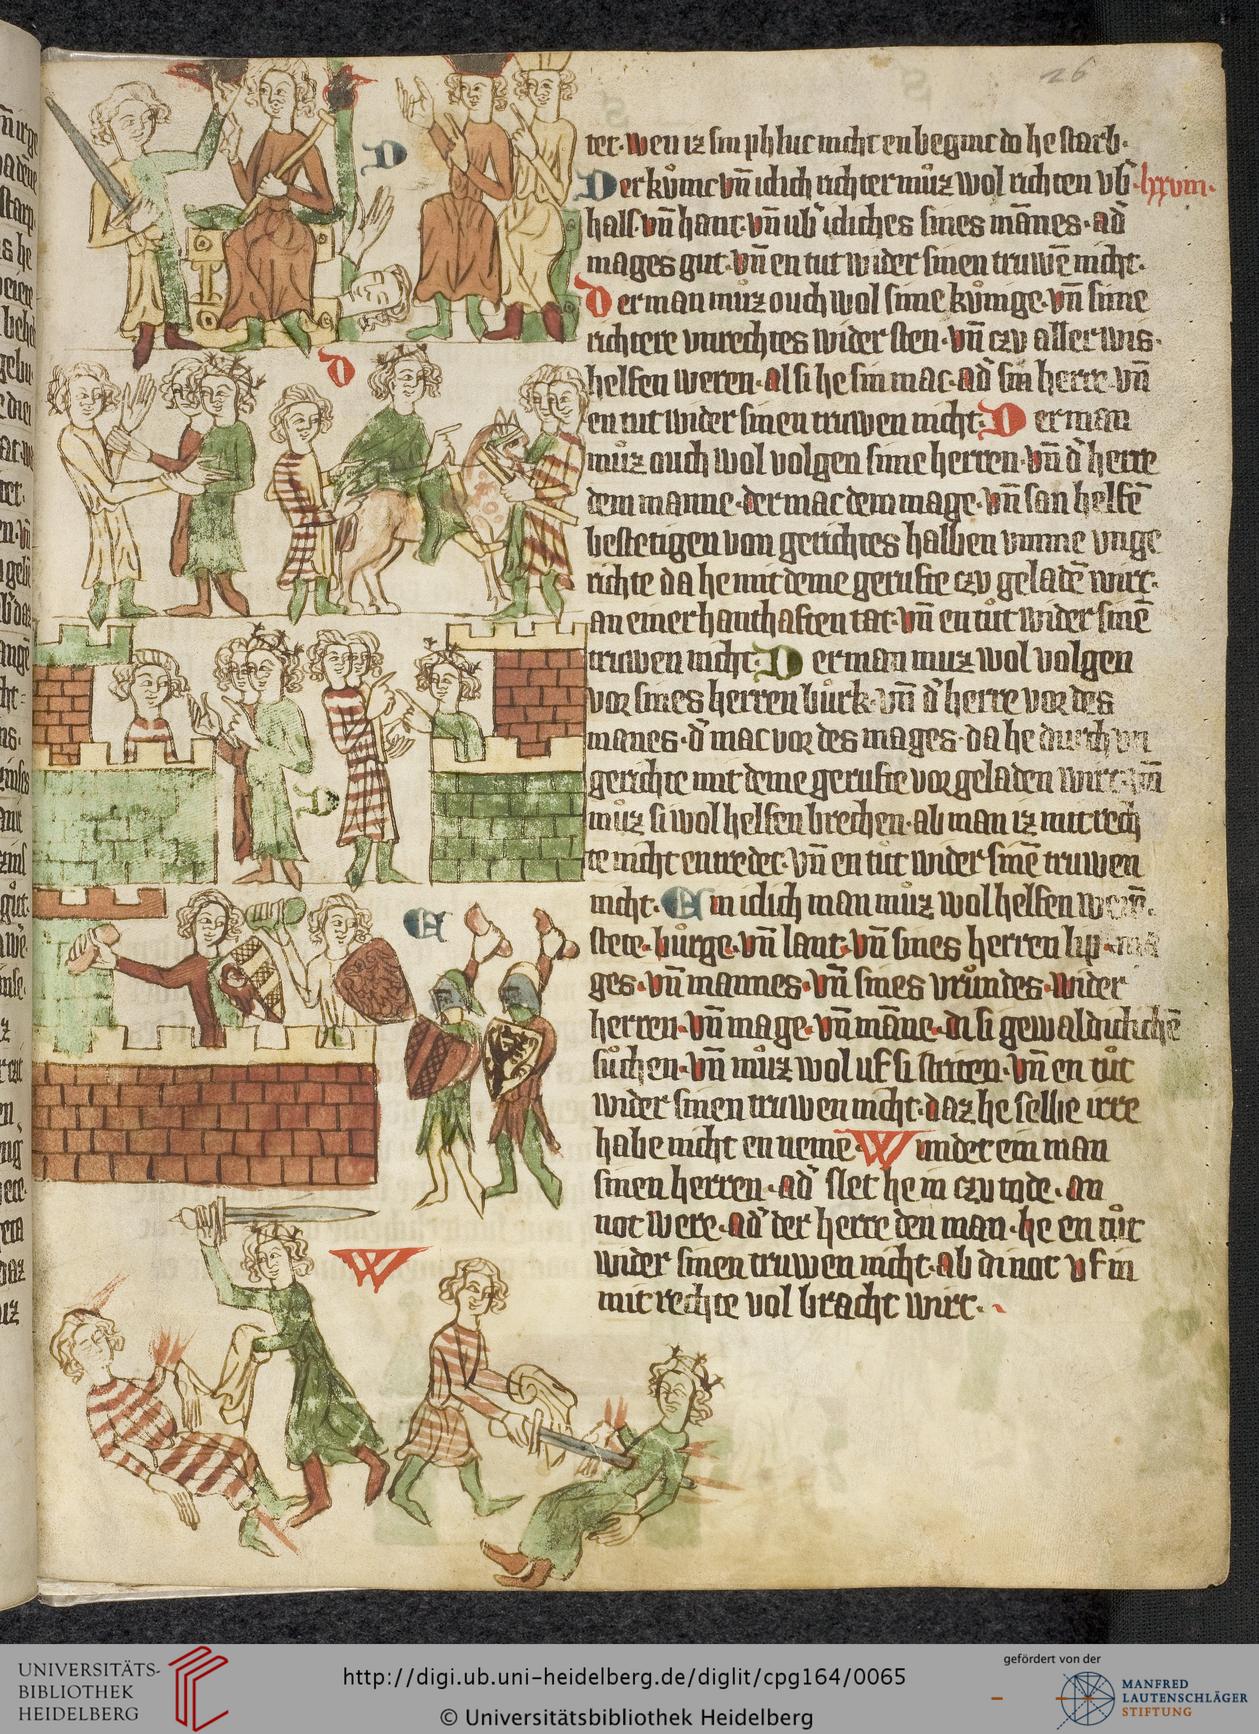 26
ter. wen iz sin phluc nicht en begint do he starb.
Der kůnic vñ iclich richter můz wol richten vb̄ .lxxviii.
hals. vñ hant. vñ ub̄ icliches sines mānes. ad̄
mages gut. vñ en tut wider sinen truwē nicht.
Der man můz ouch wol sime kůnige. vñ sime
richtere vnrechtes wider sten. vñ czv aller wis.
helfen weren. al si he sin mac. ad̄ sin herre. vñ
en tut wider sinen truwen nicht. Der man
můz ouch wol volgen sime herren. vñ d̄ herre
dem manne. der mac dem mage. vñ san helfē
bestetigen von gerichtes halben vmme vnge
richte da he mit deme gerufte czv geladē wirt.
an einer hanthaften tat. vñ en tůt wider sinē
truwen nicht. Der man muz wol volgen
vor sines herren bůrk. vñ d̄ herre vor des
manes. d̄ mac vor des mages. da he durch vn
gerichte mit deme gerufte vor geladen wirt. vñ
můz si wol helfen brechen. ab man iz mit rech
te nicht entredet. vñ en tůt wider sinē truwen
nicht. Ein iclich man můz wol helfen
stete. bůrge. vñ lant. vñ sines herren lip
ges. vñ mannes. vñ sines vrůndes. wider
herren. vñ mage. vñ māne. di si gewaldiclichē
sůchen. vñ můz wol uf si striten. vñ en tůt
wider sinen truwen nicht. daz he selbe irre
habe nicht en neme. Wundet ein man
sinen herren. ad̄ slet he in czu tode. an
not were. ad̄ der herre den man. he en tůt
wider sinen truwen nicht. ab di not vf in
mit rechte vol bracht wirt.
D
D
D
E
W
UNIVERSITÄTS-
BIBLIOTHEK
HEIDELBERG
http://digi.ub.uni-heidelberg.de/diglit/cpg164/0065
© Universitätsbibliothek Heidelberg
gefördert von der
MANFRED
LAUTENSCHLÄGER
STIFTUNG